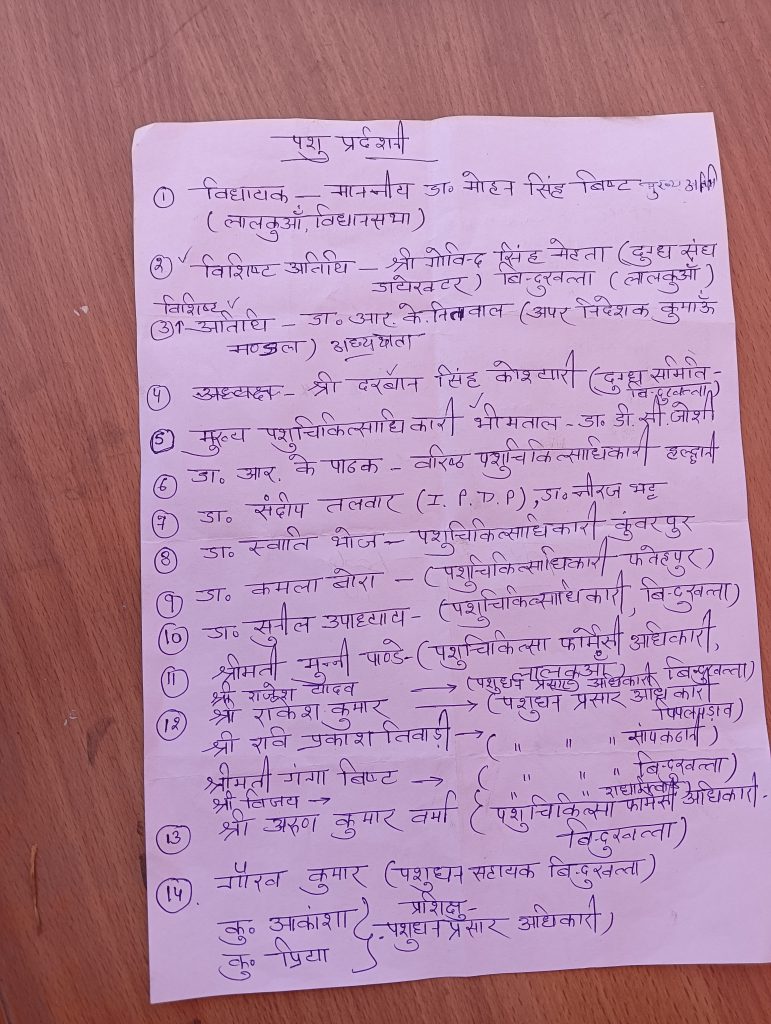 पशु प्रर्दशनी
① विधायक – माननीय डा॰ मोहन सिंह बिष्ट मुख्य अतिथी
(लालकुआँ, विधानसभा)
② ✓ विशिष्ट अतिथि – श्री गोविन्द सिंह मेहता (दुग्ध संघ
डायेरेक्टर) बिन्दुखत्ता (लालकुआँ)
विशिष्ट ✓
③ अतिथि – डा॰ आर. के. नितवाल (अपर निदेशक कुमाऊँ
मण्डल) अध्यक्षता
④ अध्यक्ष – श्री दरबान सिंह कोश्यारी (दुग्ध समिति-
बिन्दुखत्ता)
⑤ मुख्य पशुचिकित्साधिकारी ✓ भीमताल – डा॰ डी. सी. जोशी
⑥ डा॰ आर. के पाठक – वरिष्ठ पशुचिकित्साधिकारी हल्द्वानी
⑦ डा॰ संदीप तलवार (I. P. D. P), डा॰ नीरज भट्ट
⑧ डा॰ स्वाति भोज – पशुचिकित्साधिकारी कुंवरपुर
⑨ डा॰ कमला बोरा – (पशुचिकित्साधिकारी फतेहपुर)
⑩ डा॰ सुनील उपाध्याय – (पशुचिकित्साधिकारी, बिन्दुखत्ता)
⑪ श्रीमती मुन्नी पाण्डे – (पशुचिकित्सा फार्मेसी अधिकारी,
लालकुआँ)
श्री राजेश यादव → (पशुधन प्रसार अधिकारी बिन्दुखत्ता)
⑫ श्री राकेश कुमार → (पशुधन प्रसार अधिकारी
पिपलपड़ाव)
श्री रवि प्रकाश तिवाड़ी → ( " " " )
श्रीमती गंगा बिष्ट → ( " " " बिन्दुखत्ता)
श्री विजय →
⑬ श्री अरुण कुमार वर्मा (पशुचिकित्सा फार्मेसी अधिकारी.
बिन्दुखत्ता)
⑭. गौरव कुमार (पशुधन सहायक बिन्दुखत्ता)
कु॰ आकांशा } प्रशिक्षु-
कु॰ प्रिया } पशुधन प्रसार अधिकारी)